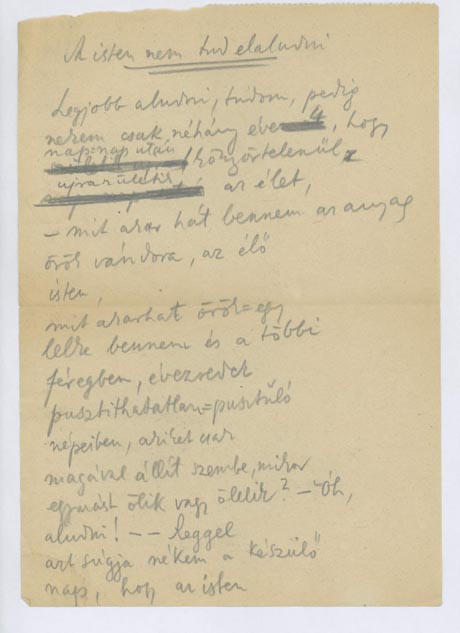 Az isten nem tud elaludni
Legjobb aludni, tudom, pedig
nekem csak néhány éve, hogy
nap=nap után
könyörtelenül
ujraszületik
az élet,
– mit akar hát bennem az anyag
örök vándora, az élő
isten,
mit akarhat örök=egy
lelke bennem és a többi
féregben, évezredek
pusztithatatlan=pusztuló
népeiben, akiket csak
magával állít szembe, mikor
egymást ölik vagy ölelik? – Óh,
aludni! – – Reggel
azt súgja nékem a készülő
nap, hogy az isten